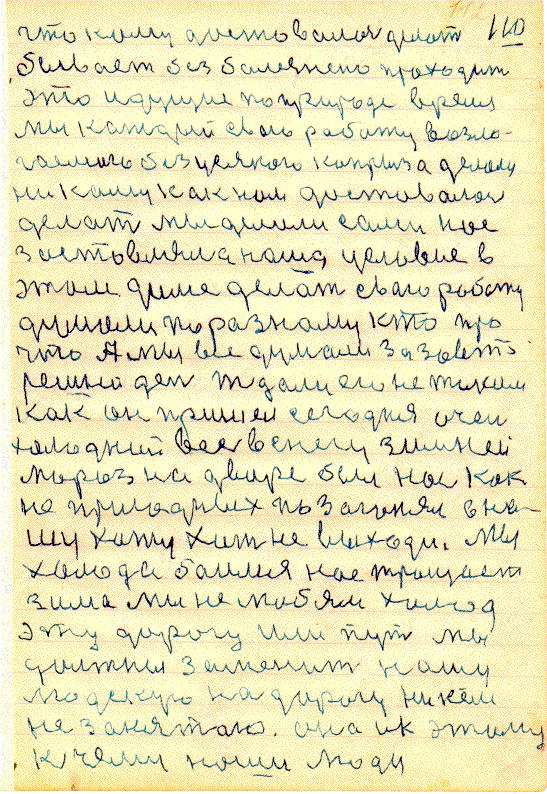 112
что кому доставался делат 110
бывает без болезнено проходит
это идущие по природе время
мы каждый сваю работу возло-
гаемаю без усякого каприза делаем
ни кому как нам доставался
делат мы делали сами нас
заставляла наша условие в
этом доме делат сваю работу
думали по разному кто про
что А мы все думали за завтз
решний ден ждали его не таким
как он пришел сегодня очен
холодный весь в снегу зимней
мороз на дваре был нас как
не природных позагонял в на-
шу хату хот не выходи. Мы
холода баимся нас тращает
зима мы не любям холод
эту дорогу или пут мы
должны заменит нашу
людскую на дорогу никем
не занятаю. она и к этому
к чему наши люди